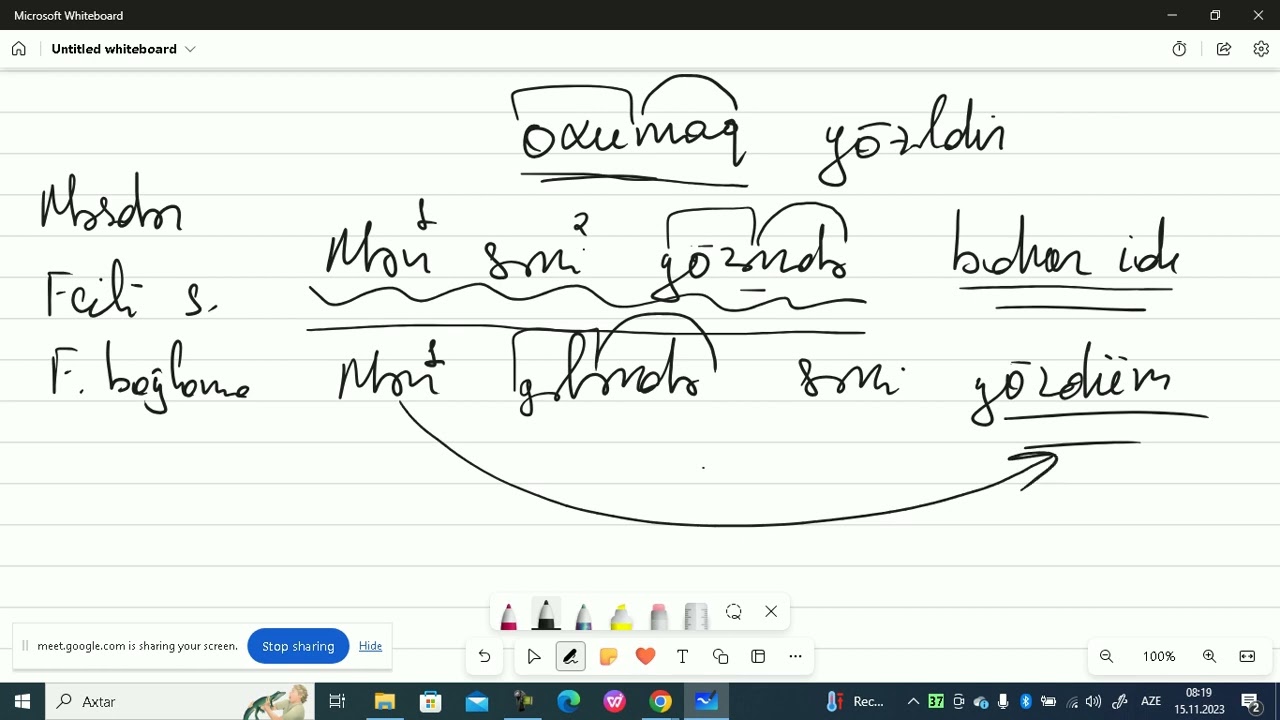 Microsoft Whiteboard
Untitled whiteboard
oxumaq gözəldir
Məsdər
Mən 1 səni 2 görəndə bahar idi
Feili s.
F. bağlama
Mən 1 gələndə səni gözlədim
meet.google.com is sharing your screen. Stop sharing Hide
100%
Axtar
Rec...
37
AZE
08:19
15.11.2023
2